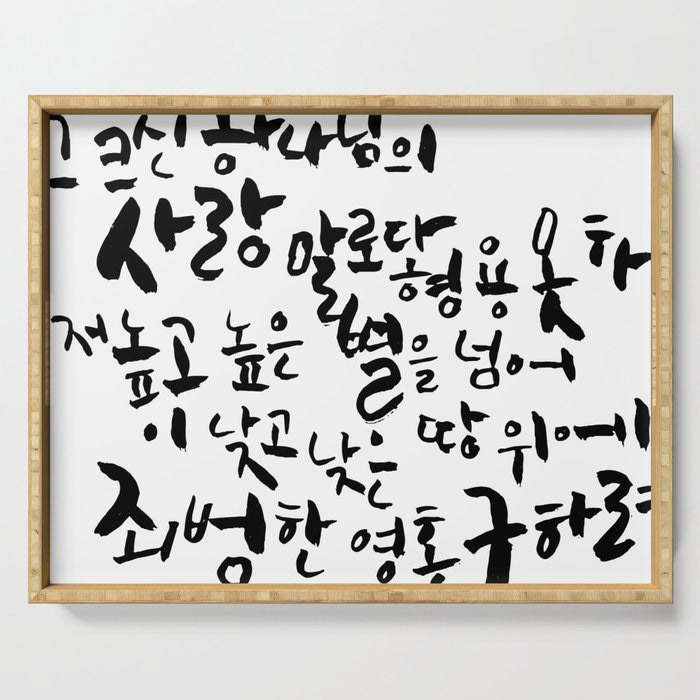 그 크신 하나님의
사랑 말로다 형용 못 하
저 높고 높은 별을 넘어
이 낮고 낮은 땅 위에
죄범한 영혼 구하려